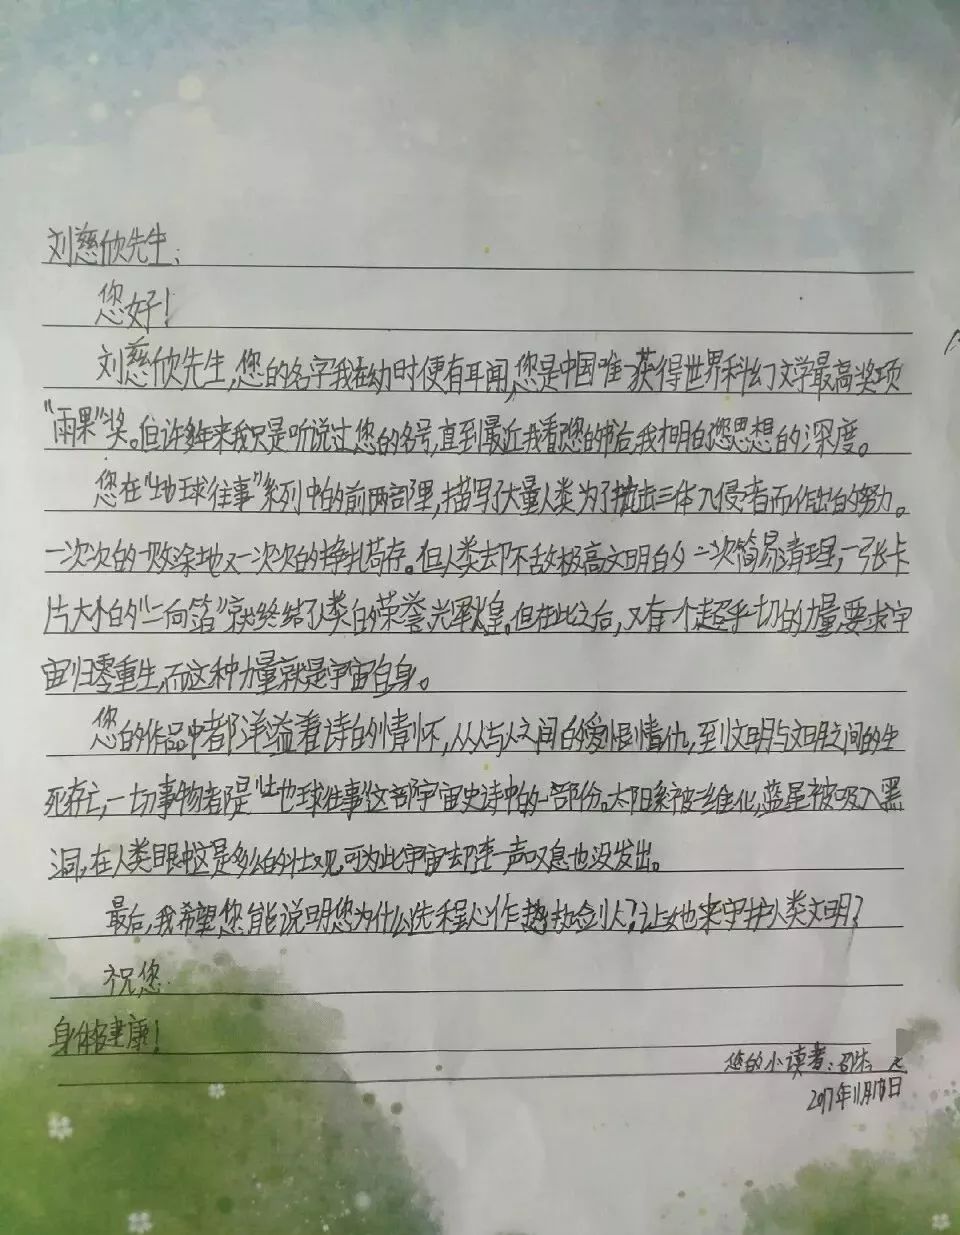 刘慈欣先生:
您好!
刘慈欣先生,您的名字我在幼时便有耳闻,您是中国唯一获得世界科幻文学最高奖项
“雨果”奖。但许多年来我只是听说过您的名号,直到最近我看您的书后,我才明白您思想的深度。
您在“地球往事”系列中的前两部里,描写了大量人类为了抗击三体入侵者而作出的努力。
一次次的一败涂地又一次次的挣扎苟存。但人类却不敌极高文明的一次简易清理,一张卡
片大小的“二向箔”就终结了人类的荣誉、光辉煌。但在此之后,又有一个超乎一切的力量要求宇
宙归零重生,而这种力量就是宇宙自身。
您的作品中都洋溢着诗的情怀,从人与人之间的爱恨情仇,到文明与文明之间的生
死存亡,一切事物都是“地球往事”这部宇宙史诗中的一部份。太阳系被二维化,蓝星被吸入黑
洞,在人类眼中这是多么的壮观,可为此宇宙却连一声叹息也没发出。
最后,我希望您能说明您为什么选程心作为执剑人?让她来守护人类文明?
祝您
身体健康!
您的小读者:
2017年11月18日